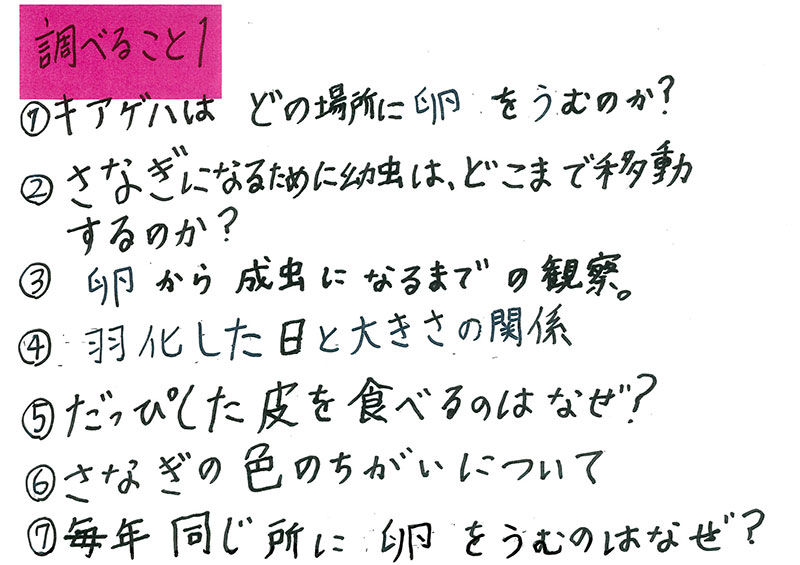 調べること1
①キアゲハは どの場所に卵をうむのか?
②さなぎになるために幼虫は、どこまで移動
するのか?
③ 卵から成虫になるまでの観察。
④ 羽化した日と大きさの関係
⑤だっぴした皮を食べるのはなぜ?
⑥さなぎの色のちがいについて
⑦毎年同じ所に卵をうむのはなぜ?